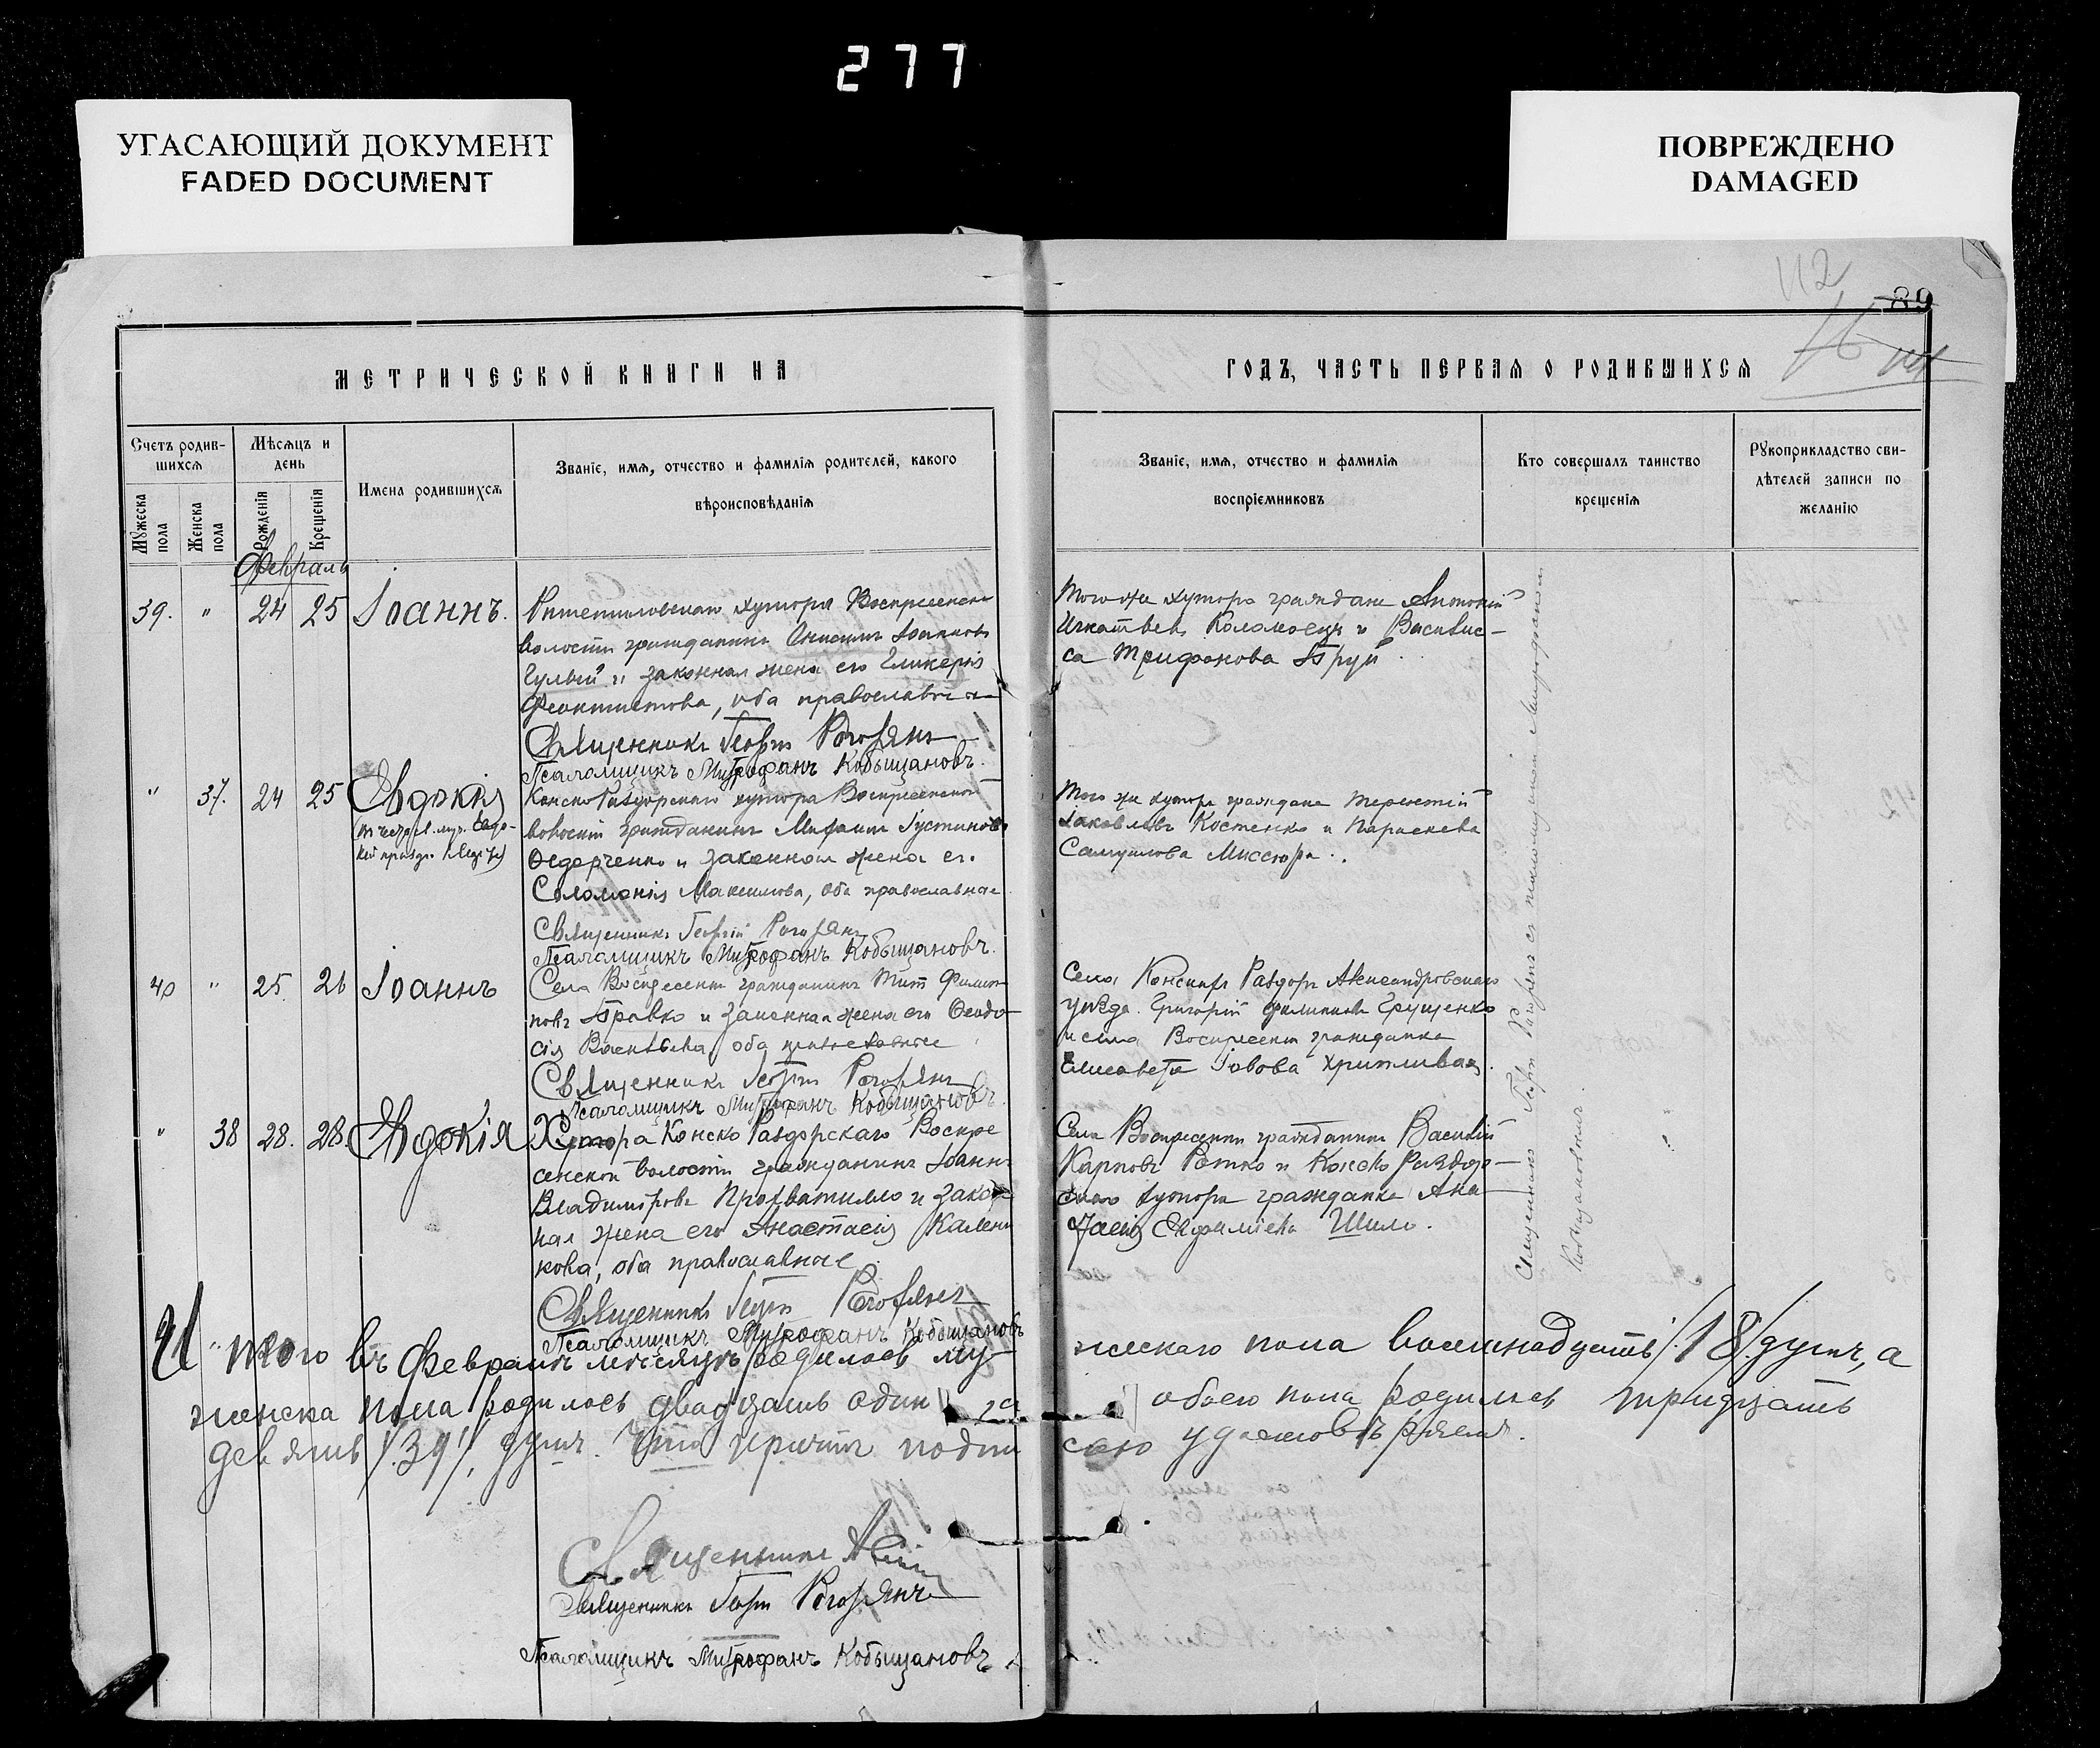 277
УГАСАЮЩИЙ ДОКУМЕНТ
FADED DOCUMENT
ПОВРЕЖДЕНО
DAMAGED
112
89
МЕТРИЧЕСКОЙ КНИГИ НА
ГОДЪ, ЧАСТЬ ПЕРВАЯ О РОДИВШИХСЯ
Счетъ родив-
шихся
Мужеска пола
Женска пола
Мѣсяцъ и
день
Рожденія
Крещенія
Имена родившихся
Званіе, имя, отчество и фамилія родителей, какого
вѣроисповѣданія
Званіе, имя, отчество и фамилія
воспріемниковъ
Кто совершалъ таинство
крещенія
Рукоприкладство сви-
дѣтелей записи по
желанію
Февраль
39. " 24 25 Іоаннъ.
хутора Воскресенской
волости гражданинъ Онисимъ Іоанновъ
Гулый и законная жена его Гликерія
Феоктистова, оба православные
Священникъ Георгій
Псаломщикъ Митрофанъ Кобыщановъ.
Того же хутора граждане Антоній
Игнатьевъ Коломоецъ и Василис-
са Трифонова
" 37. 24 25 Евдокія
Конско Раздорскаго хутора Воскресенской
волости гражданинъ Михаилъ Іустиновъ
Федорченко и законная жена его
Соломонія Максимова, оба православные
Священникъ Георгій
Псаломщикъ Митрофанъ Кобыщановъ.
Того же хутора граждане Терентій
Іаковлевъ Костенко и Параскева
Самуилова Миссюра.
40 " 25. 26 Іоаннъ
Села Воскресенки гражданинъ Титъ Филип-
повъ Правко и законная жена его Феодо-
сія Васильева, оба православные
Священникъ Георгій
Псаломщикъ Митрофанъ Кобыщановъ
Села Конскихъ Раздоръ Александровскаго
уѣзда Григорій Филипповъ Грущенко
и села Воскресенки гражданка
Елисавета Іовова Хрипливая.
" 38 28. 28. Евдокія
Хутора Конско Раздорскаго Воскре
сенской волости гражданинъ Іоаннъ
Владиміровъ Прохватилло и закон
ная жена его Анастасія Калени
кова, оба православные
Священникъ Георгій
Псаломщикъ Митрофанъ Кобыщановъ
Села Воскресенки гражданинъ Василій
Карповъ Ротко и Конско Раздор-
скаго хутора гражданка Ана
стасія Евфиміева Шило.
Итого въ Февралѣ мѣсяцѣ родилось му-
жескаго пола восемнадцать /18/ душъ, а
женска пола родилось двадцать один
обоего пола родилось тридцать
девять /39/ душъ. Что причтъ подпи
сью удостовѣряемъ.
Священникъ
Священникъ Георгій
Псаломщикъ Митрофанъ Кобыщановъ.